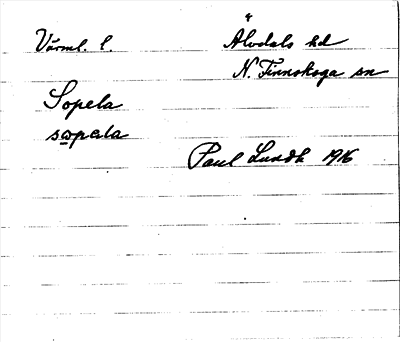 Värml. l. Älvdals hd
N. Finnskoga sn
Sopela
sopela
Paul Lundh 1916